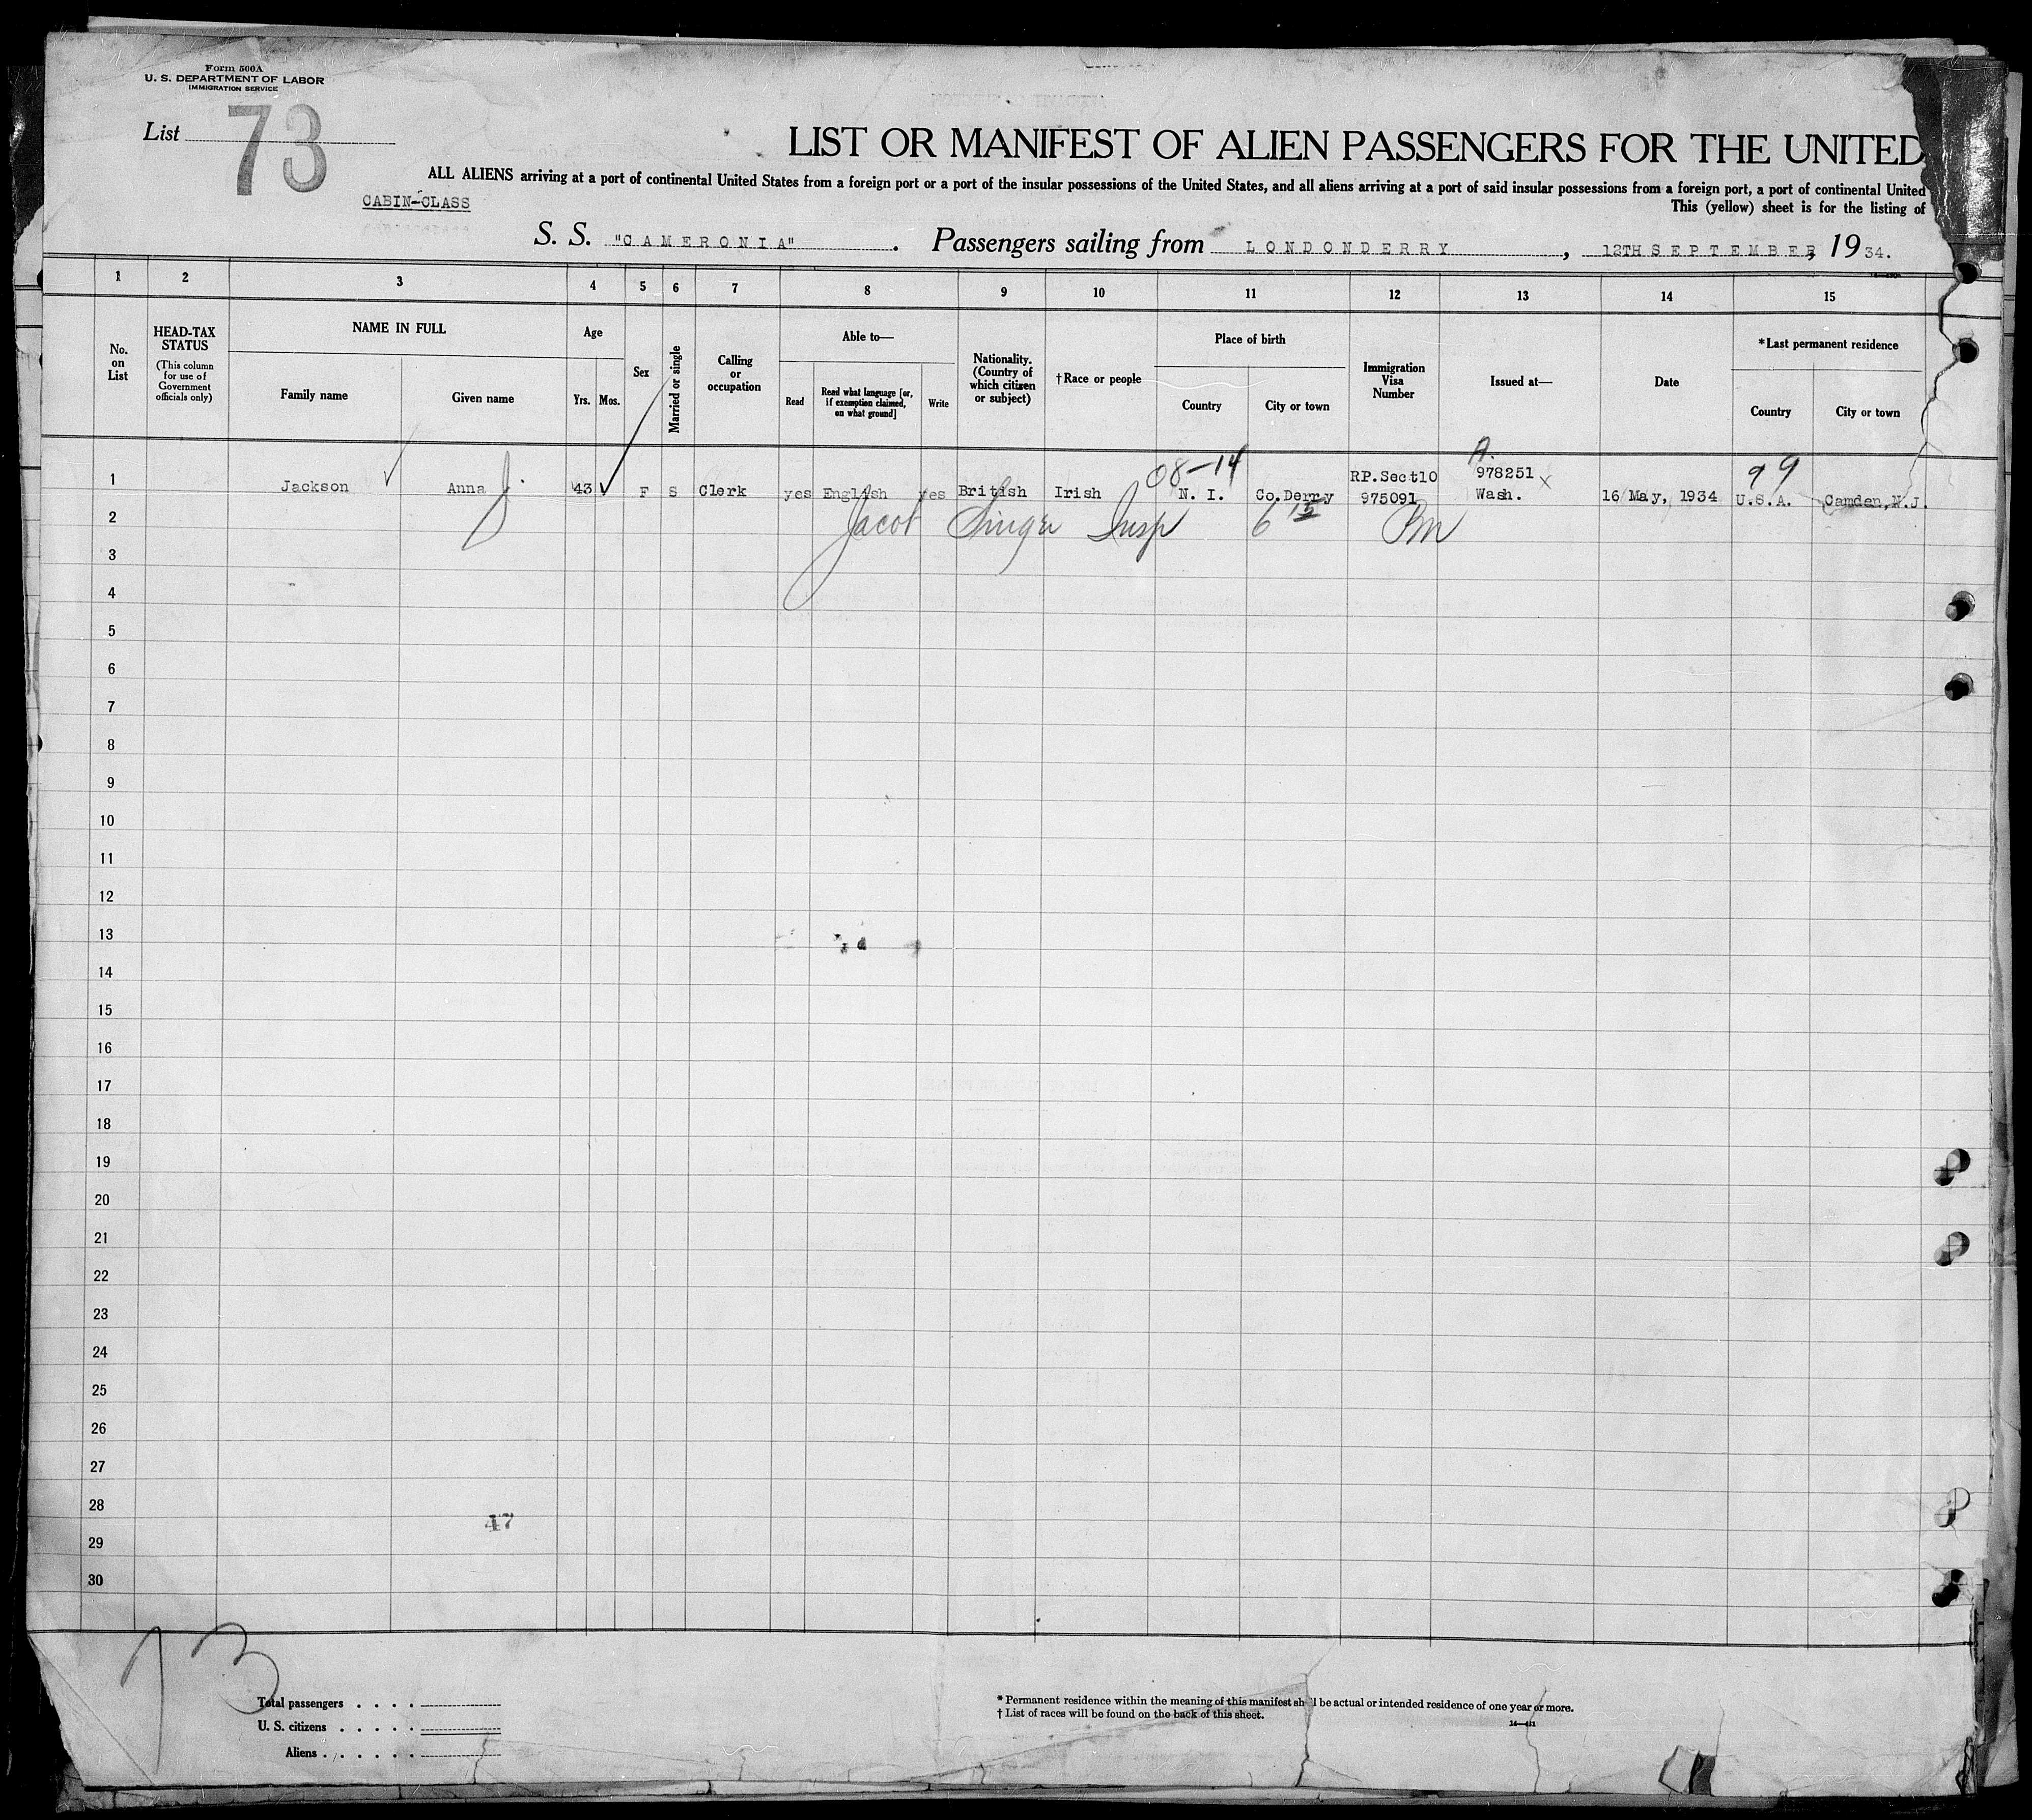 Form 500A
U. S. DEPARTMENT OF LABOR
IMMIGRATION SERVICE
List 73
LIST OR MANIFEST OF ALIEN PASSENGERS FOR THE UNITED
ALL ALIENS arriving at a port of continental United States from a foreign port or a port of the insular possessions of the United States, and all aliens arriving at a port of said insular possessions from a foreign port, a port of continental United
CABIN-CLASS
This (yellow) sheet is for the listing of
S. S. "CAMERONIA" . Passengers sailing from LONDONDERRY , 12TH SEPTEMBER, 1934.
1 2 3 4 5 6 7 8 9 10 11 12 13 14 15
No. on List
HEAD-TAX STATUS
(This column for use of Government officials only)
NAME IN FULL
Family name
Given name
Age
Yrs. Mos.
Sex
Married or single
Calling or occupation
Able to—
Read
Read what language [or, if exemption claimed, on what ground]
Write
Nationality. (Country of which citizen or subject)
†Race or people
Place of birth
Country
City or town
Immigration Visa Number
Issued at—
Date
*Last permanent residence
Country
City or town
A.
08-14 RP.Sect10 978251 x 99
1 Jackson Anna J. 43 F S Clerk yes English yes British Irish N. I. Co.Derry 975091 Wash. 16 May, 1934 U.S.A. Camden, N.J.
2 Jacob Singer Insp 6 15 Pm
3
4
5
6
7
8
9
10
11
12
13
14
15
16
17
18
19
20
21
22
23
24
25
26
27
28
47
29
30
73
Total passengers . . . .
U. S. citizens . . . . .
Aliens . . . . . .
* Permanent residence within the meaning of this manifest shall be actual or intended residence of one year or more.
† List of races will be found on the back of this sheet.